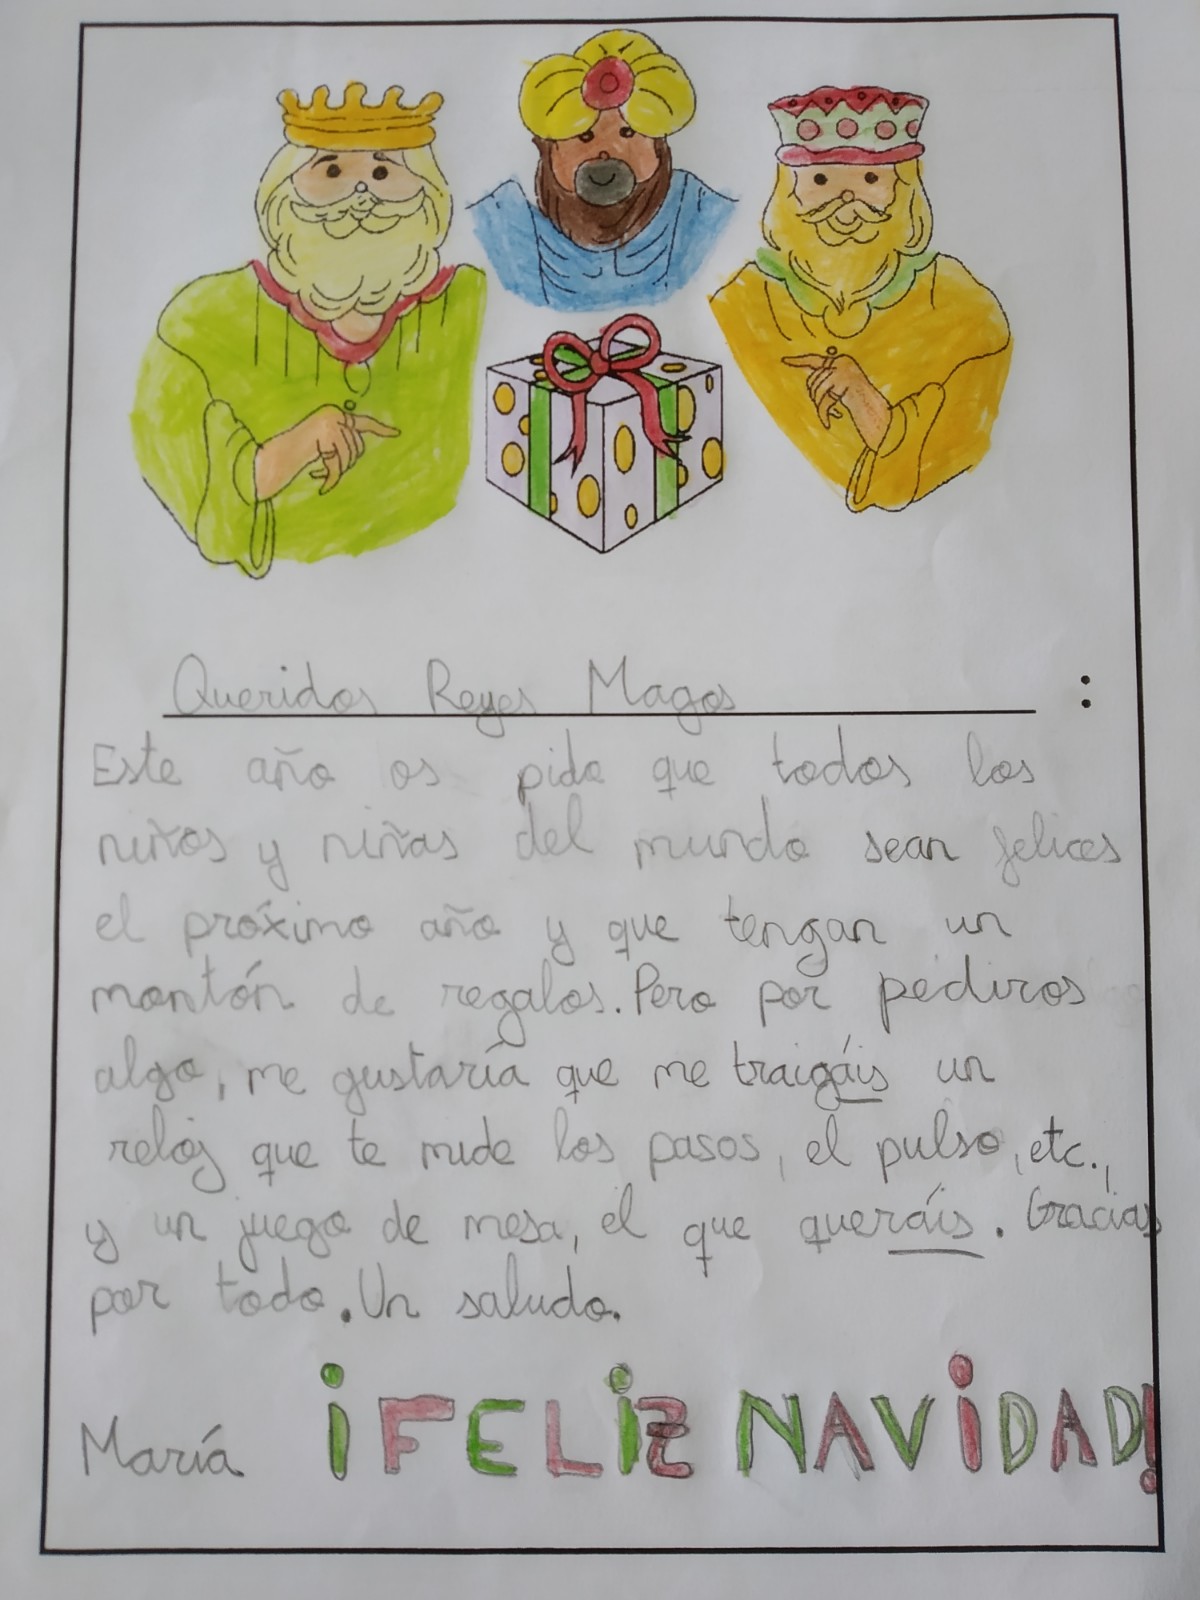 Queridos Reyes Magos :
Este año os pido que todos los
niños y niñas del mundo sean felices
el próximo año y que tengan un
montón de regalos. Pero por pediros
algo, me gustaría que me traigáis un
reloj que te mide los pasos, el pulso, etc.,
y un juego de mesa, el que queráis. Gracias
por todo. Un saludo.
María ¡FELIZ NAVIDAD!